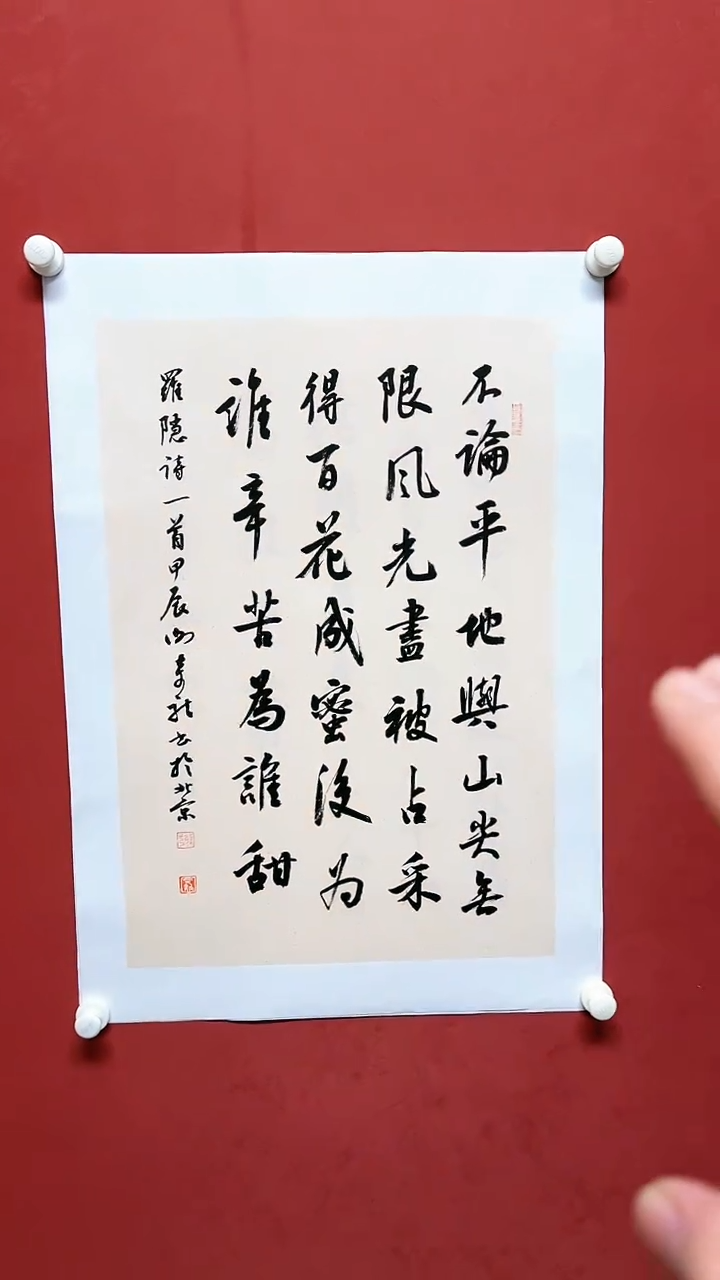 不論平地與山尖無
限風光盡被占采
得百花成蜜後为
誰辛苦為誰甜
羅隱詩一首甲辰书於北京